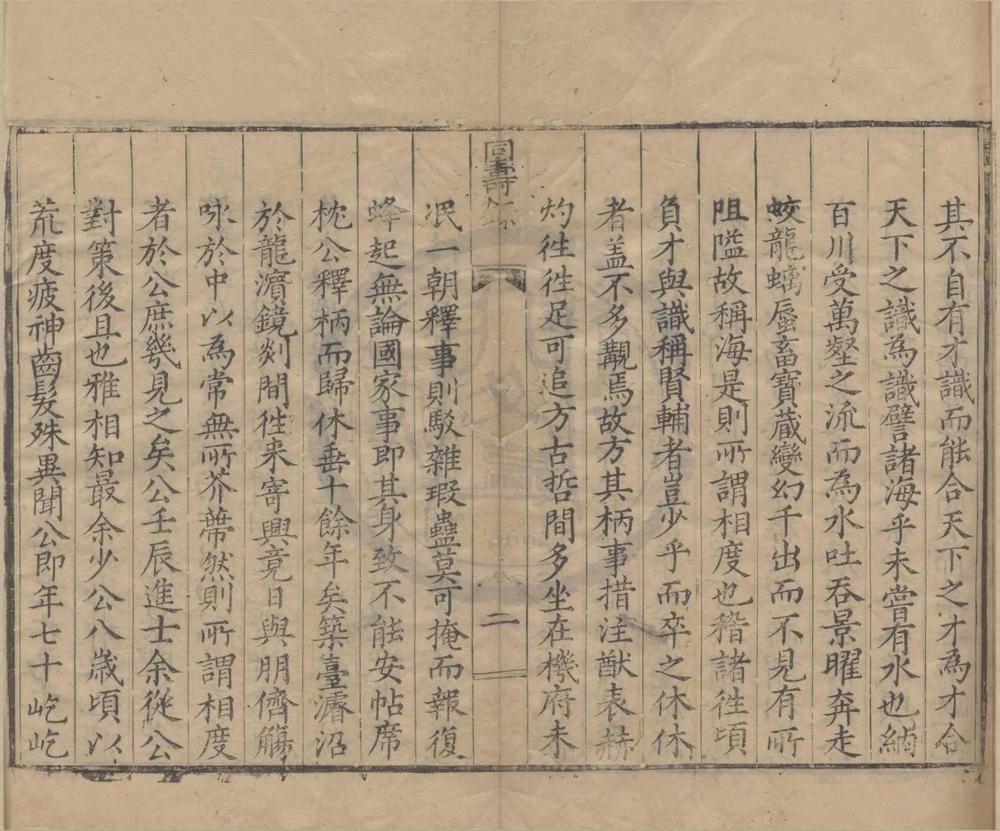 其不自有才識而能合天下之才為才合
天下之識為識譬諸海乎未嘗有水也納
百川受萬壑之流而為水吐吞景曜奔走
蛟龍螭蜃畜寶藏變幻千出而不見有所
阻隘故稱海是則所謂相度也稽諸徃頃
負才與識稱賢輔者豈少乎而卒之休休
者盖不多覯焉故方其柄事措注猷表赫
灼徃徃足可追方古哲間多坐在機府未
同壽錄
二
冺一朝釋事則駁雜瑕蠱莫可掩而報復
蜂起無論國家事即其身致不能安帖席
枕公釋柄而歸休垂十餘年矣築臺濬沼
於龍濵鏡剡間徃来寄興竟日與朋儕觴
咏於中以為常無所芥蔕然則所謂相度
者於公庶幾見之矣公壬辰進士余從公
對策後且也雅相知最余少公八歲頃以
荒度疲神齒髮殊異聞公即年七十屹屹